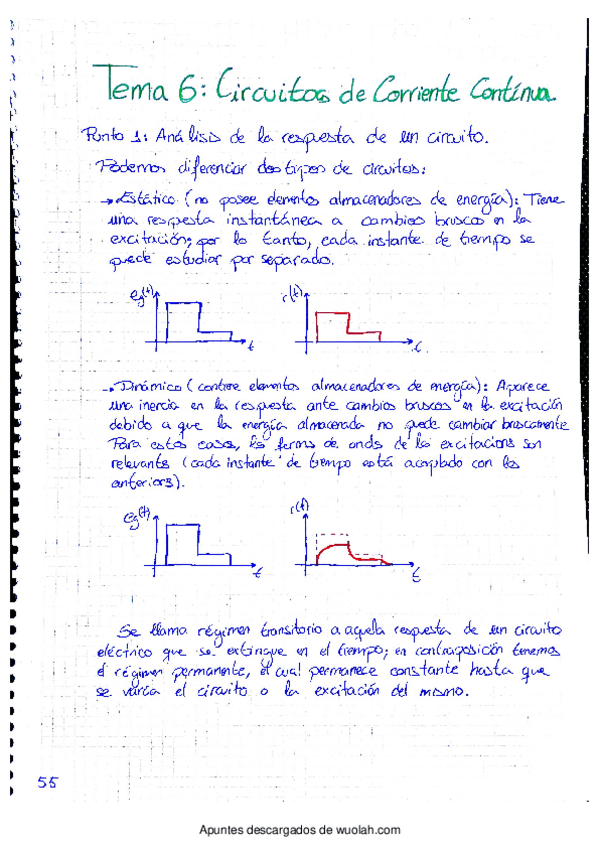 Tema 6: Circuitos de Corriente Contínua
Punto 1: Análisis de la respuesta de un circuito.
Podemos diferenciar dos tipos de circuitos:
→ Estático (no posee elementos almacenadores de energía): Tiene
una respuesta instantánea a cambios bruscos en la
excitación; por lo tanto, cada instante de tiempo se
puede estudiar por separado.
eg(t) r(t)
t t
→ Dinámico (contiene elementos almacenadores de energía): Aparece
una inercia en la respuesta ante cambios bruscos en la excitación
debido a que la energía almacenada no puede cambiar bruscamente
Para estos casos, la forma de onda de la excitacions son
relevants (cada instante de tiempo está acoplado con los
anteriors).
eg(t) r(t)
t t
Se llama régimen transitorio a aquella respuesta de un circuito
eléctrico que se extingue en el tiempo; en contraposición tenemos
el régimen permanente, el cual permanece constante hasta que
se varía el circuito o la excitación del mismo.
55
Apuntes descargados de wuolah.com